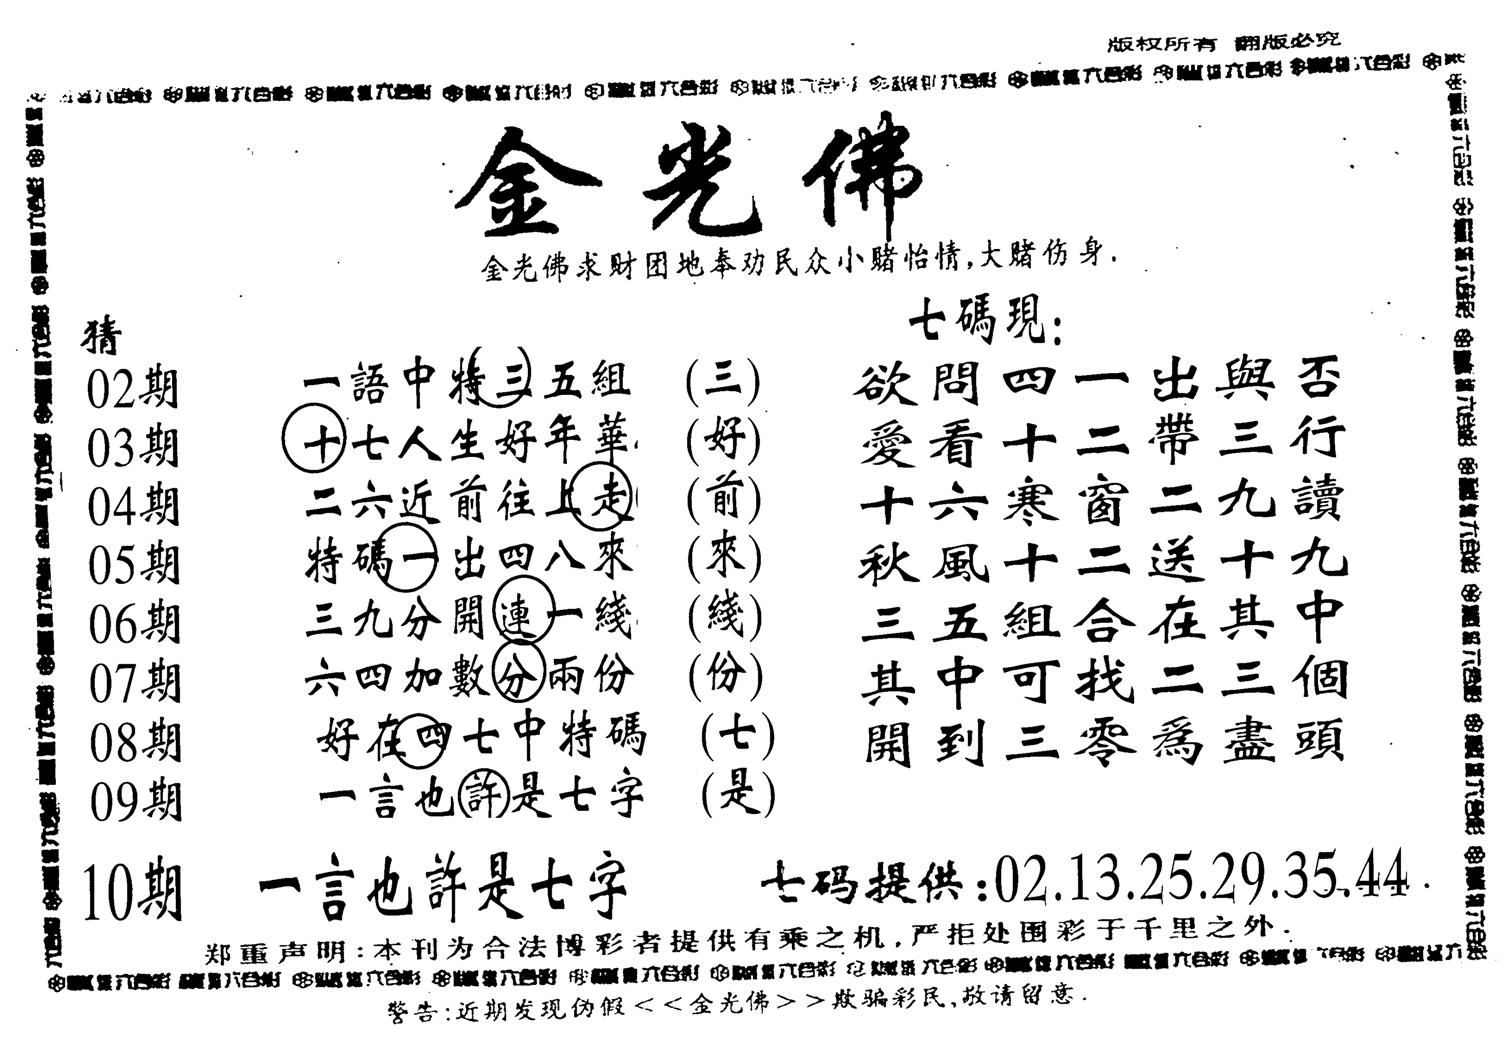 版权所有 翻版必究
金光佛
金光佛求财团地奉劝民众小赌怡情,大赌伤身.
七碼現:
猜
02期 一語中特三五組 (三) 欲問四一出與否
03期 十七人生好年華 (好) 愛看十二帶三行
04期 二六近前往上走 (前) 十六寒窗二九讀
05期 特碼一出四八來 (來) 秋風十二送十九
06期 三九分開連一綫 (綫) 三五組合在其中
07期 六四加數分兩份 (份) 其中可找二三個
08期 好在四七中特碼 (七) 開到三零爲盡頭
09期 一言也許是七字 (是)
10期 一言也許是七字 七码提供:02.13.25.29.35.44.
郑重声明:本刊为合法博彩者提供有乘之机,严拒处围彩于千里之外.
警告:近期发现伪假<<金光佛>>欺骗彩民,敬请留意.